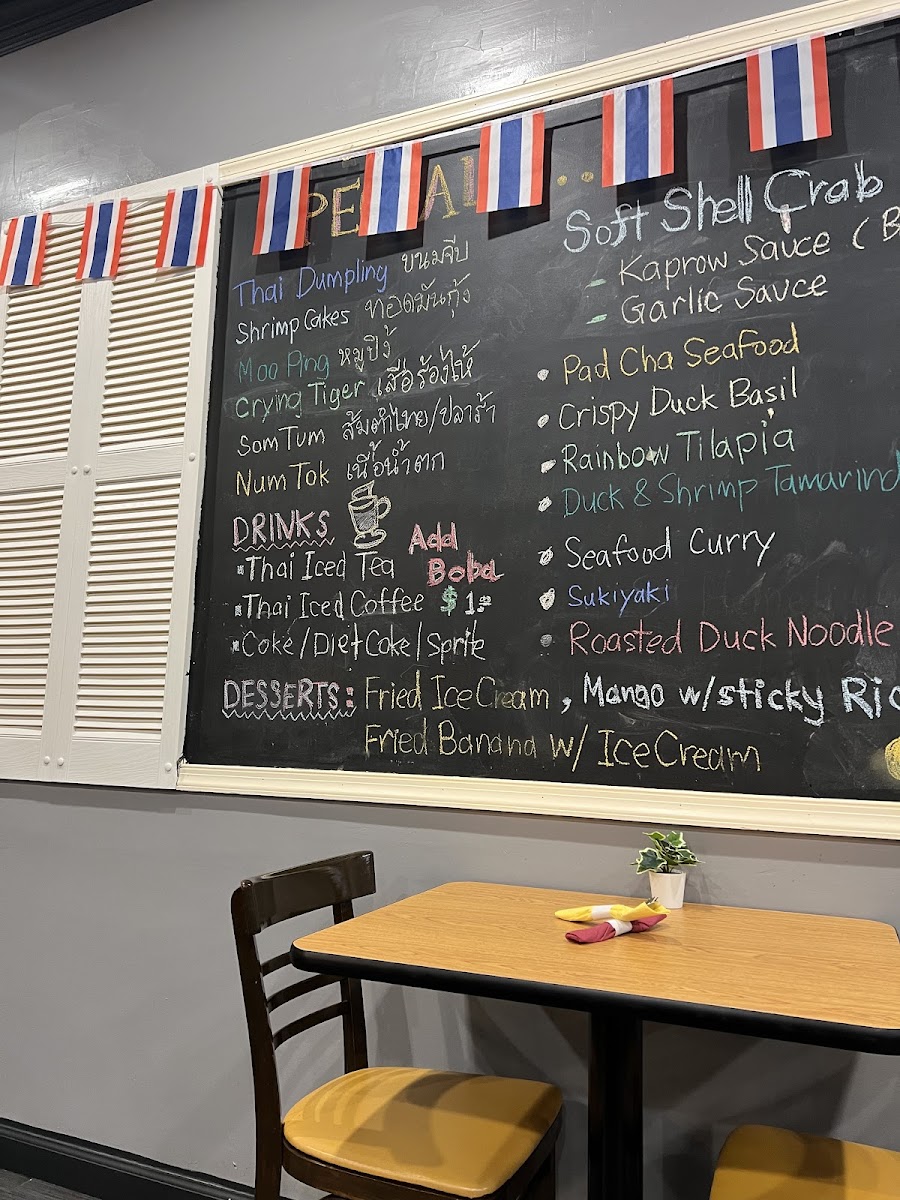 Thai Dumpling ขนมจีบ
Shrimp Cakes ทอดมันกุ้ง
Moo Ping หมูปิ้ง
Crying Tiger เสือร้องไห้
Som Tum ส้มตำไทย/ปลาร้า
Num Tok เนื้อน้ำตก
DRINKS
Thai Iced Tea
Thai Iced Coffee
Add Boba
$1.00
Coke/Diet Coke/Sprite
Soft Shell Crab
- Kaprow Sauce (B
- Garlic Sauce
• Pad Cha Seafood
• Crispy Duck Basil
• Rainbow Tilapia
• Duck & Shrimp Tamarind
• Seafood Curry
• Sukiyaki
• Roasted Duck Noodle
DESSERTS: Fried Ice Cream, Mango w/sticky Ric
Fried Banana w/ Ice Cream